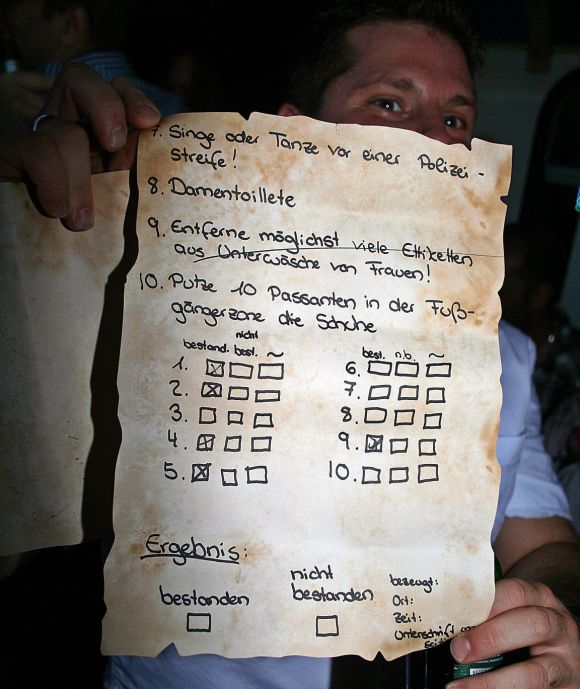 7. Singe oder Tanze vor einer Polizei-
streife!
8. Damentoillete
9. Entferne möglichst viele Ettiketten
aus Unterwäsche von Frauen!
10. Putze 10 Passanten in der Fuß-
gängerzone die Schuhe
nicht
bestand. best. ~ best. n.b. ~
1. 6.
2. 7.
3. 8.
4. 9.
5. 10.
Ergebnis:
bestanden nicht
bestanden
bezeugt:
Ort:
Zeit:
Unterschrift